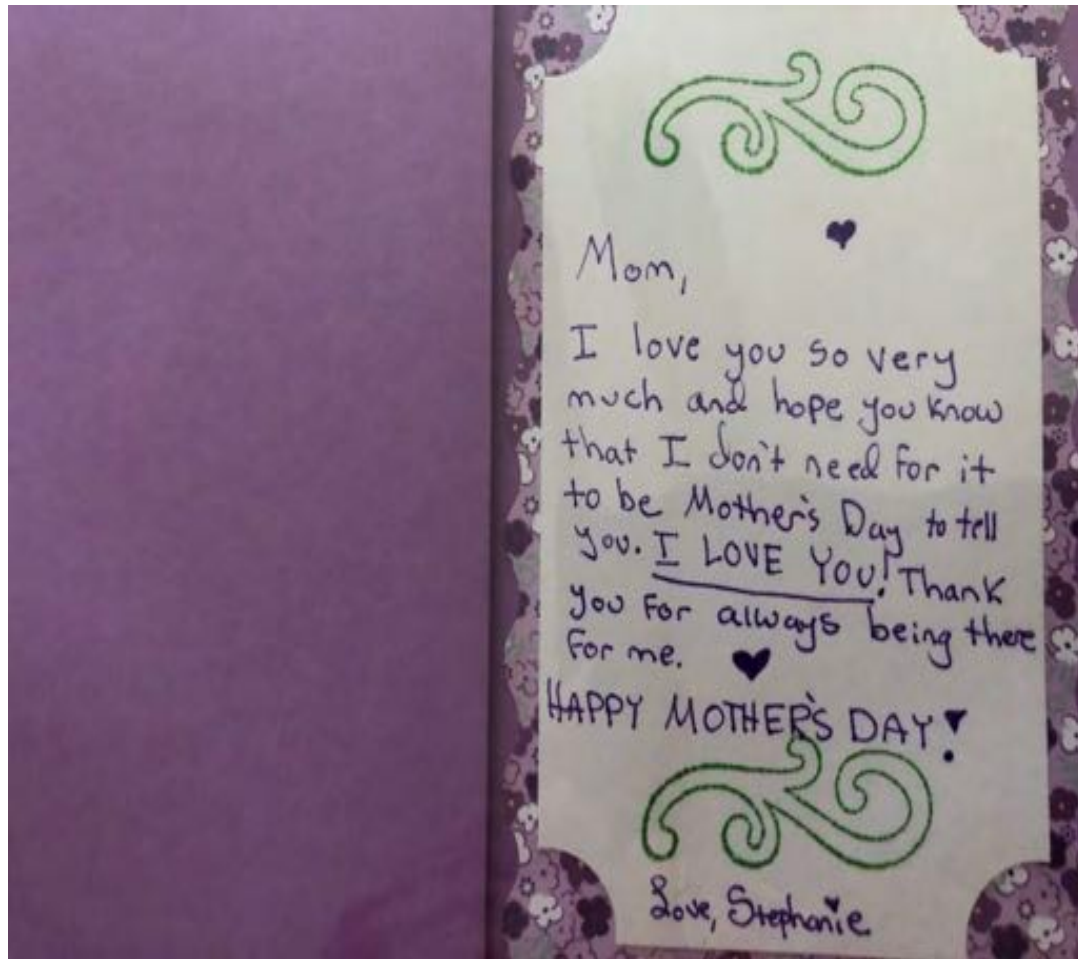 Mom,
I love you so very
much and hope you know
that I don't need for it
to be Mother's Day to tell
you. I LOVE YOU! Thank
you for allways being there
for me.
HAPPY MOTHER'S DAY!
Love, Stephanie